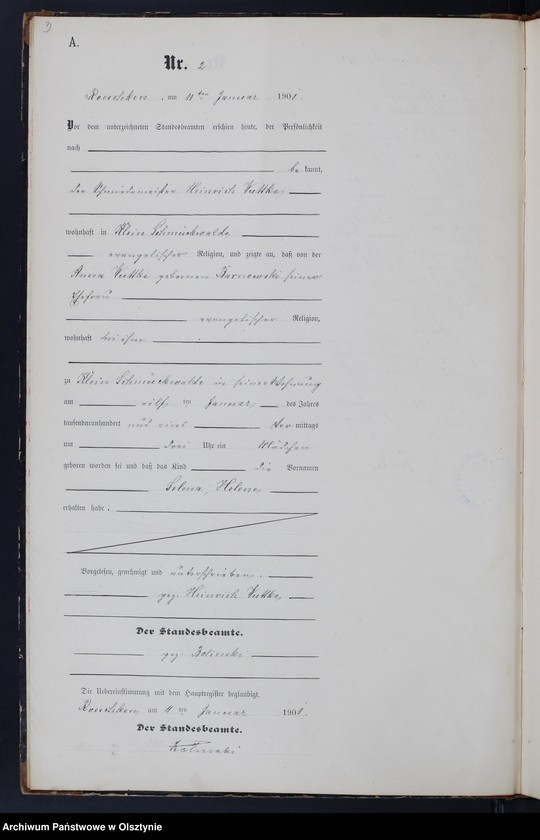 3
A.
Nr. 2
, am 11ten Januar 1901.
Vor dem unterzeichneten Standesbeamten erschien heute, der Persönlichkeit
nach
be kannt,
der Schmiedemeister Heinrich
wohnhaft in Klein Schmückwalde
evangelischer Religion, und zeigte an, daß von der
Anna geborenen seiner
Ehefrau
evangelischer Religion,
wohnhaft bei ihm
zu Klein Schmückwalde in seiner Wohnung
am elften Januar des Jahres
tausendneunhundert und eins Vor mittags
um drei Uhr ein Mädchen
geboren worden sei und daß das Kind die Vornamen
Selma, Helene
erhalten habe.
Vorgelesen, genehmigt und unterschrieben.
gez. Heinrich
Der Standesbeamte.
gez.
Die Uebereinstimmung mit dem Hauptregister beglaubigt.
am 11ten Januar 1901.
Der Standesbeamte.
Archiwum Państwowe w Olsztynie